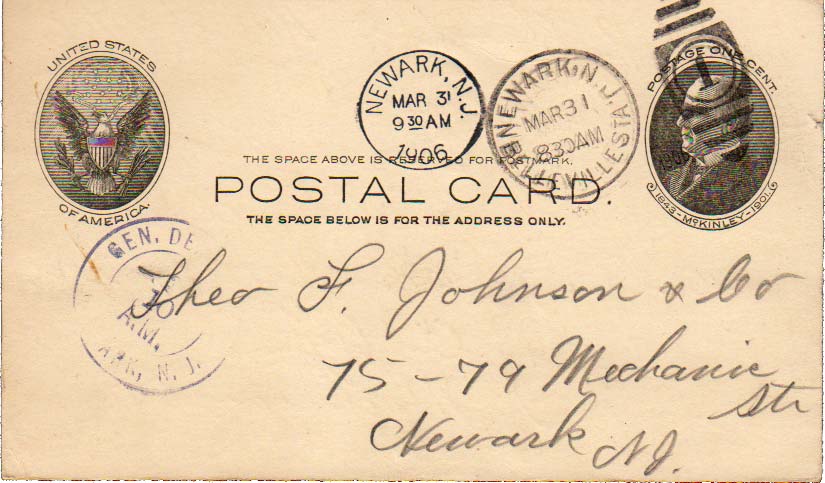 UNITED STATES
OF AMERICA.
NEWARK, N.J.
MAR 31
9 30 AM
1906
NEWARK, N.J.
MAR 31
830AM
BELLEVILLE STA
POSTAGE ONE CENT.
1
1843-McKINLEY-1901
THE SPACE ABOVE IS RESERVED FOR POSTMARK.
POSTAL CARD.
THE SPACE BELOW IS FOR THE ADDRESS ONLY.
GEN. DE
A.M.
ARK, N. J.
Theo F. Johnson & Co
75-79 Mechanic
Str
Newark NJ.